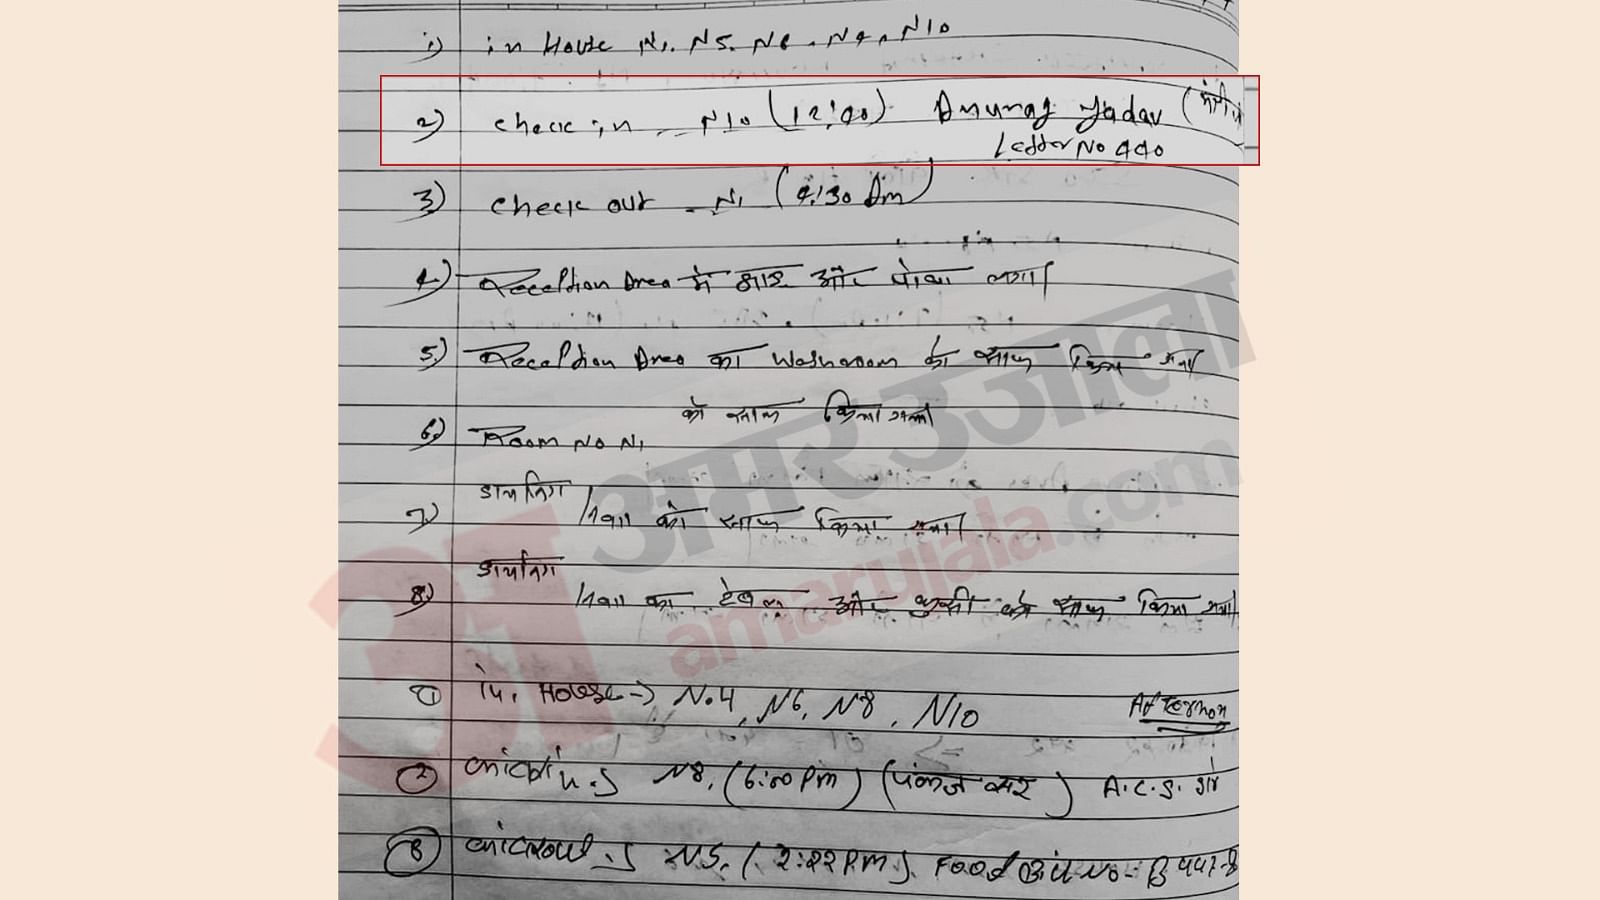 1) in House N1. N5. N8. N9. N10
2) check in N10 (12:40) Anurag Yadav
Letter No 440
3) check out N1 (9:30 Am)
4) Reception Area में झाडू और पोछा लगा।
5) Reception Area का Washroom को साफ किया गया
को साफ किया गया
6) Room No N1
डायनिंग
7) को साफ किया गया।
डायनिंग
8) का टेबल और कुर्सी को साफ किया गया
अमर उजाला
amarujala.com
① In. House → N.4, N6, N8, N10 Afternon
② N8. (6:00 PM) (पंकज सर) A.C.S.
③ N5. (2:22 PM). Food Bill No-